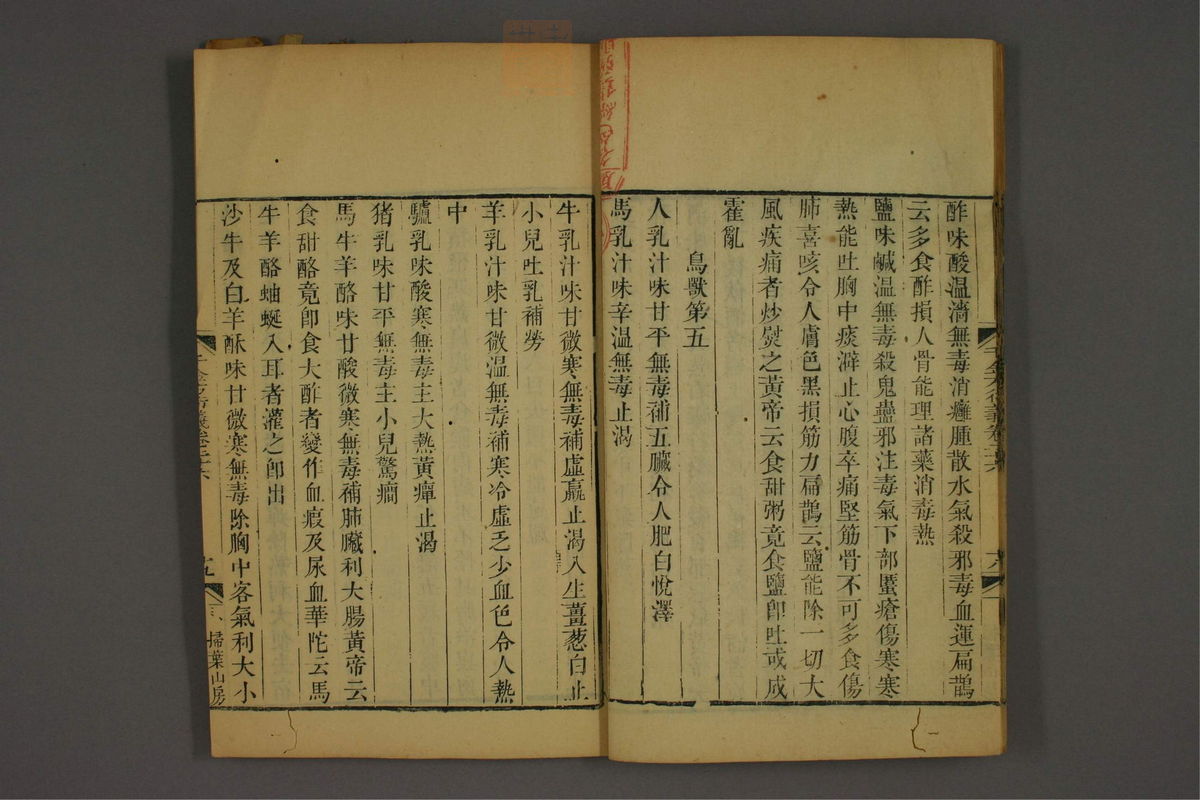 酢味酸温濇無毒消癰腫散水氣殺邪毒血運扁鵲
云多食酢損人骨能理諸藥消毒熱
鹽味鹹温無毒殺鬼蠱邪注毒氣下部䘌瘡傷寒寒
熱能吐胸中痰澼止心腹卒痛堅筋骨不可多食傷
肺喜咳令人膚色黑損筋力扁鵲云鹽能除一切大
風疾痛者炒熨之黃帝云食甜粥竟食鹽卽吐或成
霍亂
鳥獸第五
人乳汁味甘平無毒補五臟令人肥白悅澤
馬乳汁味辛温無毒止渴
牛乳汁味甘微寒無毒補虛羸止渴入生薑葱白止
小兒吐乳補勞
羊乳汁味甘微温無毒補寒冷虛乏少血色令人熱
中
驢乳味酸寒無毒主大熱黃癉止渴
猪乳味甘平無毒主小兒驚癇
馬牛羊酪味甘酸微寒無毒補肺臟利大腸黃帝云
食甜酪竟卽食大酢者變作血瘕及尿血華陀云馬
牛羊酪蚰蜒入耳者灌之卽出
沙牛及白羊酥味甘微寒無毒除胸中客氣利大小
千金方衍義卷二十六
九
掃葉山房